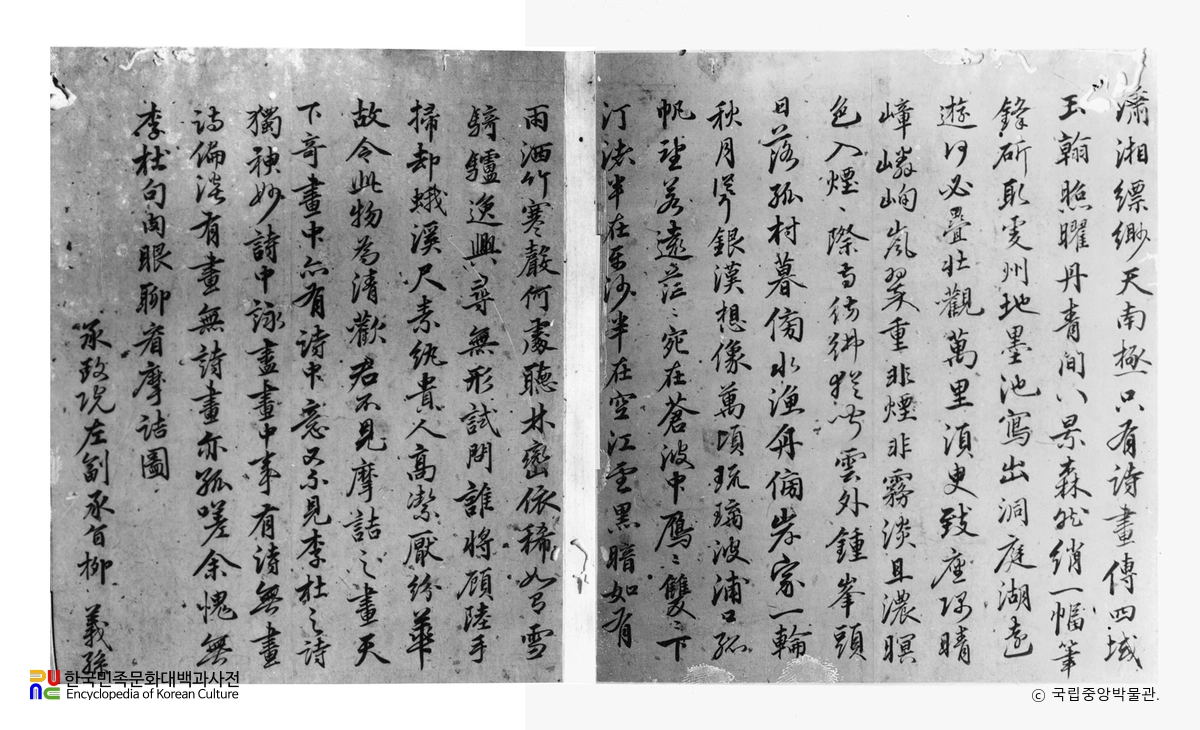 瀟湘縹緲天南極只有詩畫傳四域
玉翰照曜丹青間八景森然綃一幅筆
鋒斫取州地墨池寫出洞庭湖遠
遊何必疊壯觀萬里須臾致座隅晴
嶂嶙峋嵐翠重非煙非霧淡且濃暝
色入煙〻際寺彷彿猶聞雲外鍾峯頭
日落孤村暮傍水漁舟傍岸家一輪
秋月昇銀漢想像萬頃琉璃波浦口孤
帆望若遠茫〻宛在蒼波中鴈〻雙〻下
汀渚半在平沙半在空江雲黑暗如有
雨洒竹寒聲何處聽林巒依稀如有雪
騎驢逸興尋無形試問誰將顧陸手
掃却蛾溪尺素紈貴人高潔厭紛華
故令此物為清歡君不見摩詰之畫天
下奇畫中亦有詩中意又不見李杜之詩
獨神妙詩中詠盡畫中事有詩無畫
詩偏淡有畫無詩畫亦孤嗟余愧無
李杜句肉眼聊看摩詰圖
承政院左副承旨柳 義孫
한국민족문화대백과사전
Encyclopedia of Korean Culture
ⓒ 국립중앙박물관.